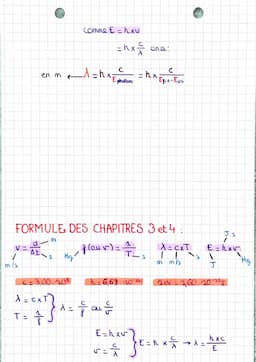 comme E = h×ν
= h× c/λ on a :
en m λ = h× c/Ephoton = h× c/Ep-En
FORMULE DES CHAPITRES 3 et 4 :
J.s
v = d/Δt m s m/s
f (ou ν) = 1/T Hz s
λ = c×T m m/s s
E = h×ν J Hz
c = 3,00·10⁸
λ = c×T
T = 1/f
λ = c/f ou c/ν
E = h×ν
ν = c/λ
E = h × c/λ → λ = h×c/E